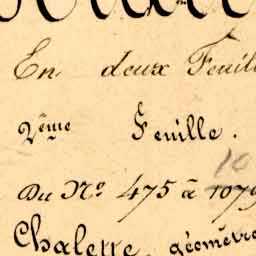 En deux Feuil
2ème Feuille.
10
Du N° 475 à 1079
Chalette, géomètre